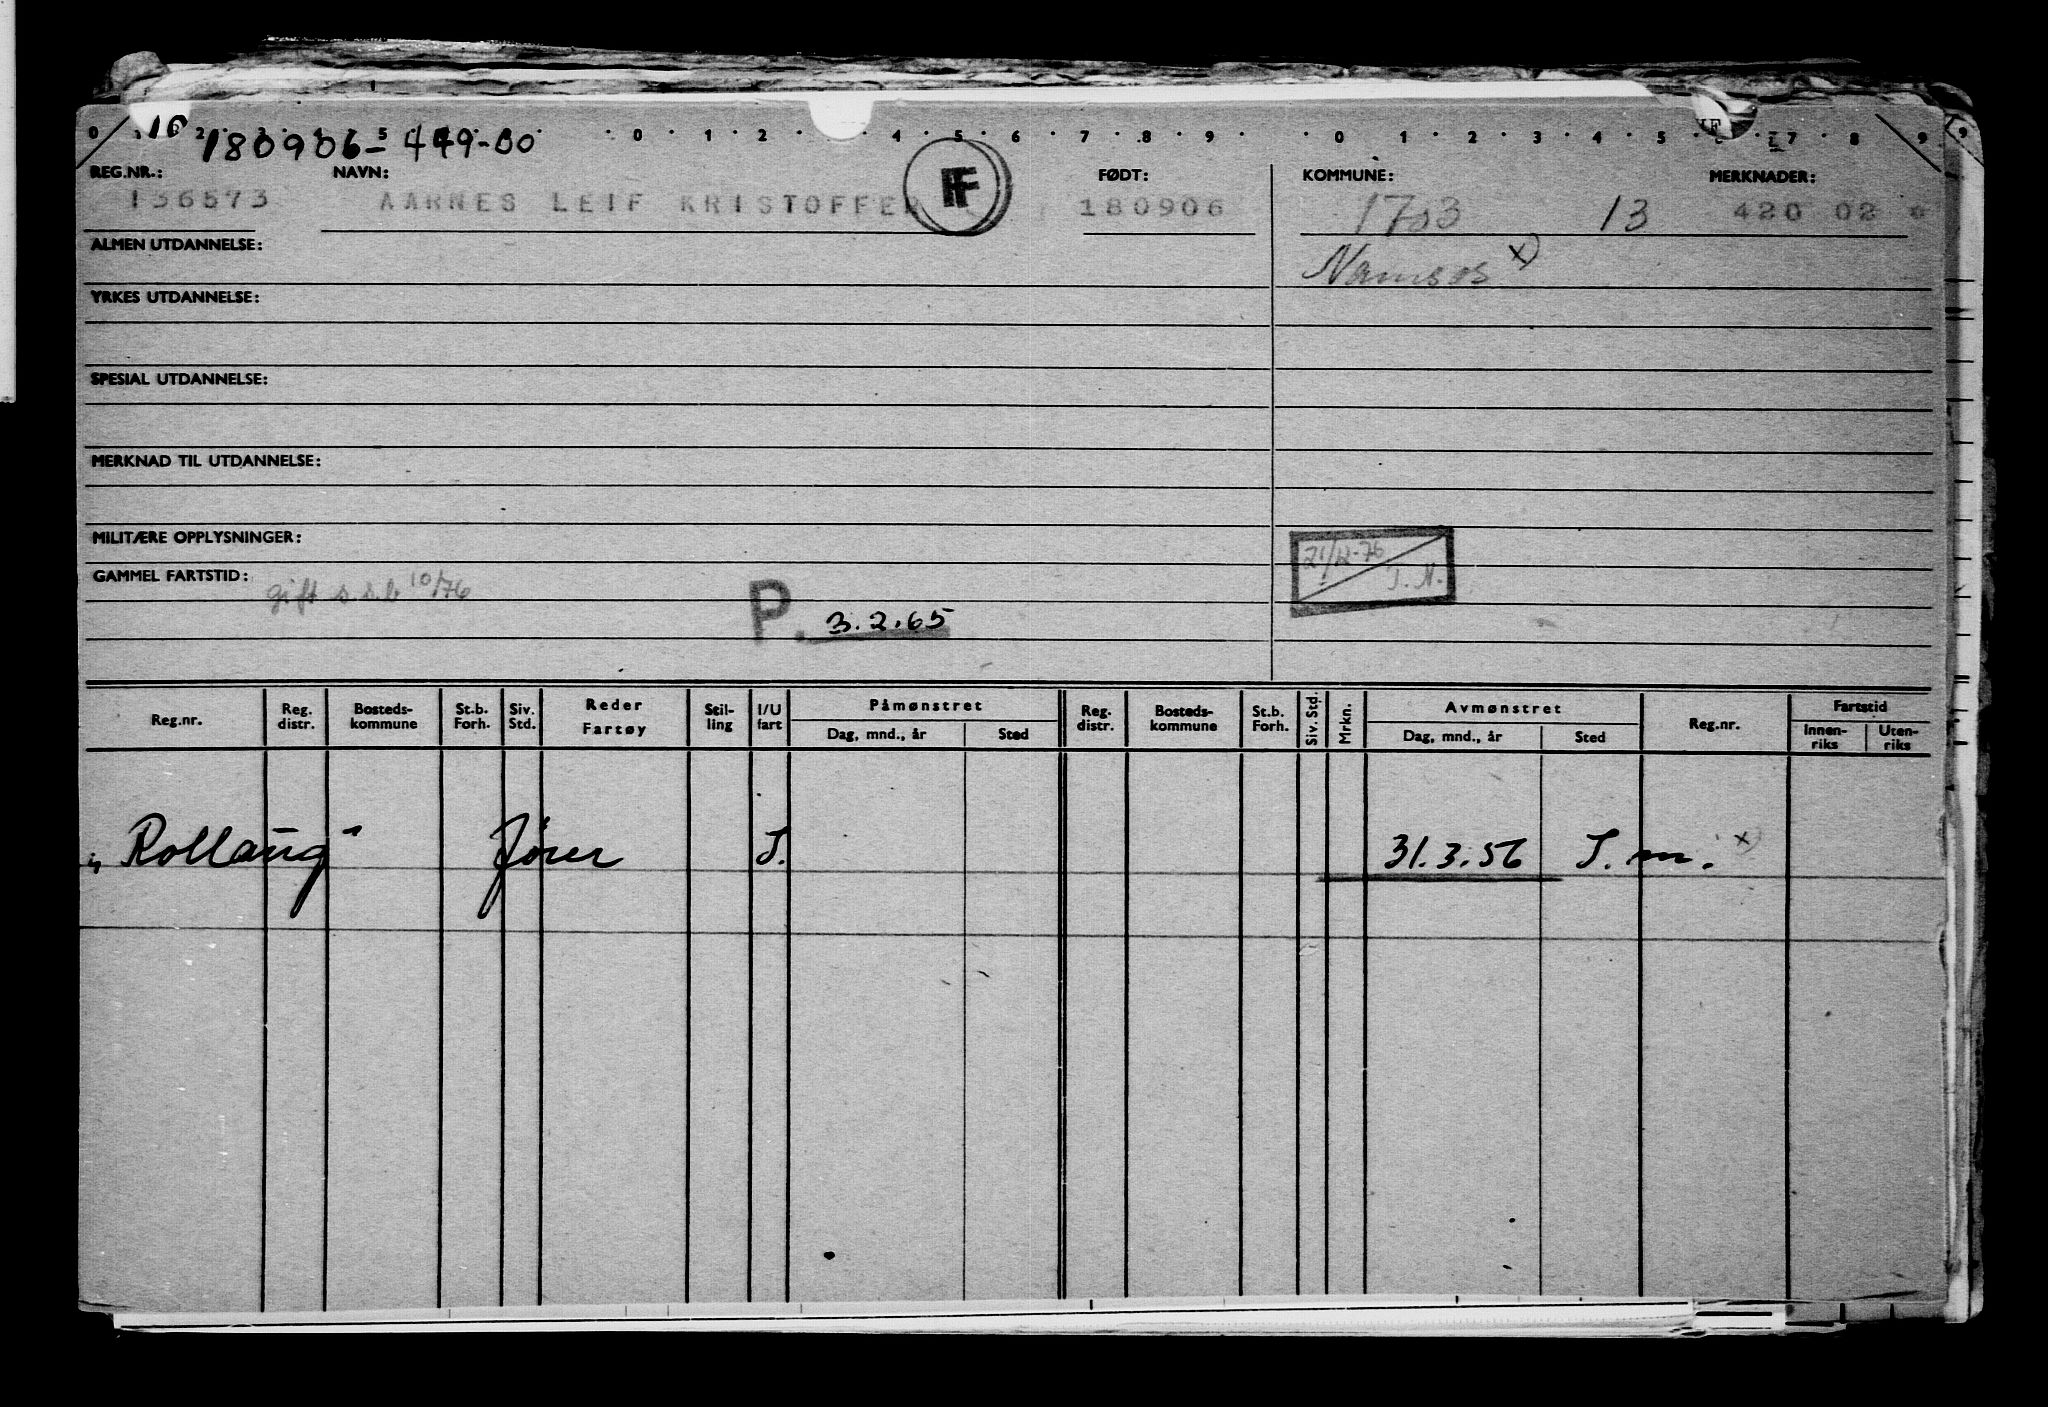 0 16 2 5 0 1 2 4 5 6 7 8 9 0 1 2 3 4 5 7 8 9
180906-449-00
REG.NR.: NAVN: FØDT: KOMMUNE: MERKNADER:
136573 AARNES LEIF KRISTOFFER FF 180906 1703 13 420 02
ALMEN UTDANNELSE: Namsos x)
YRKES UTDANNELSE:
SPESIAL UTDANNELSE:
MERKNAD TIL UTDANNELSE:
MILITÆRE OPPLYSNINGER: 21/12-76
GAMMEL FARTSTID: gift s.s.b 10/76
P. 3.2.65
Reg.nr. Reg. distr. Bosteds-kommune St.b. Forh. Siv. Std. Reder Fartøy Stil-ling I/U fart Påmønstret Dag, mnd., år Sted Reg. distr. Bosteds-kommune St.b. Forh. Siv. Std. Mrkn. Avmønstret Dag, mnd., år Sted Reg.nr. Fartstid Innen-riks Uten-riks
"Rollaug" fører 31.3.56 x)